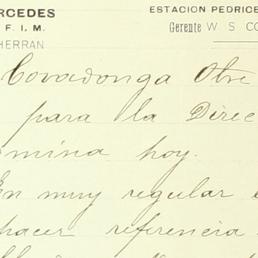 RCEDES ESTACION PEDRICE
F. I. M. Gerente W. S. CO
HERRAN
Covadonga Obre
para la Direc
omina hoy.
En muy regular
hacer referencia